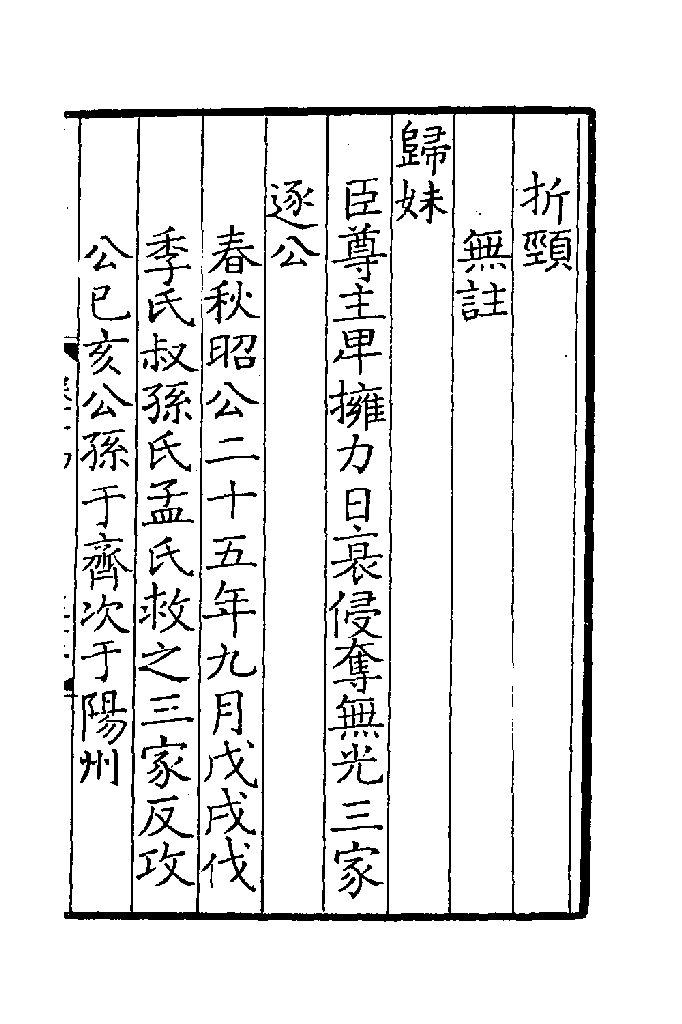 折頸
無註
歸妹
臣尊主卑擁力日衰侵奪無光三家
逐公
春秋昭公二十五年九月戊戌伐
季氏叔孫氏孟氏救之三家反攻
公已亥公孫于齊次于陽州